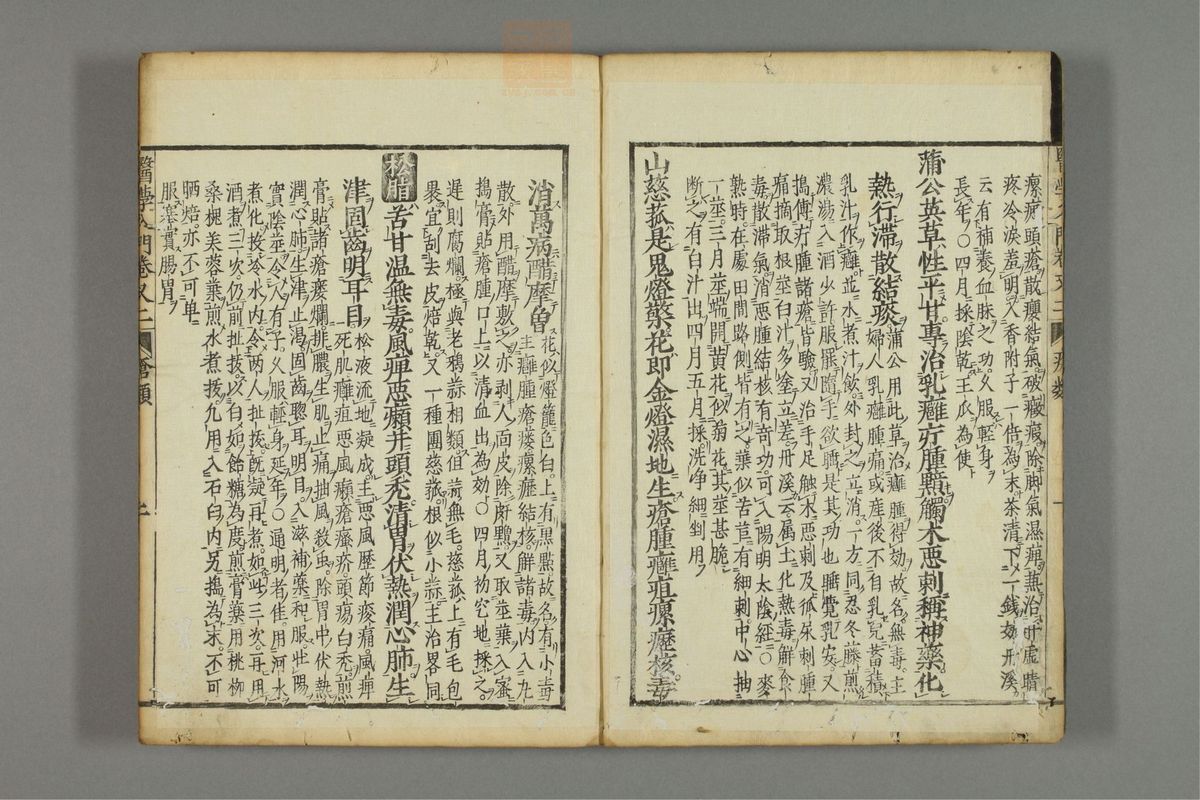 瘰癧頭瘡散癭結氣破癥瘕除脚氣濕痺熱治肝虛睛
疼冷淚羞明入香附子一倍為末茶清下一錢如丹溪
云有補養血脉之功久服輕身
長年○四月採陰乾王瓜為使
蒲公英草性平甘專治乳癰疔腫黯觸木惡刺稱神藥化
熱行滯散結痰
蒲公用此草治癰腫得効故名無毒主
婦人乳癰腫痛或産後不自乳兒蓄積
乳汁作癰並水煮汁飲外封之立消一方同忍冬藤煎
濃湯入酒少許服罷隨手欲睡是其功也睡覺乳安又
搗傅疔腫諸瘡皆驗又治手足觸木惡刺及狐尿刺腫
痛摘取根莖白汁多塗立差丹溪云属土化熱毒解食
毒散滯氣消惡腫結核有奇功可入陽明太陰經○麥
熟時在處田間路側皆有之葉似苦苣有細刺中心抽
一莖三月莖端開黄花似菊花其莖甚脆
斷之有白汁出四月五月採洗净細剉用
山慈菰是鬼燈檠花即金燈濕地生瘡腫癰疽瘰癧核毒
消萬病醋摩曾
花似燈籠色白上有黒點故名有小毒
主癰腫瘡瘻瘰癧結核解諸毒内入九
散外用醋摩敷之亦剥人面皮除皯䵳又取莖葉入蜜
搗膏貼瘡腫口上以清血出為効○四月初空地採之
遲則腐爛極與老鴉蒜相類但蒜無毛慈菰上有毛包
褁宜刮去皮焙乾又一種團慈菰根似小蒜主治畧同
松脂
苦甘温無毒風痺惡癩并頭禿清胃伏熱潤心肺生
津固齒明耳目
松液流地凝成主惡風歷節痠痛風痺
死肌癰疽惡風癩瘡瘙疥頭瘍白禿煎
膏貼諸瘡瘻爛排膿生肌止痛抽風殺虫除胃中伏熱
潤心肺生津止渴固齒聰耳明目入滋補藥和服壯陽
實陰莖令人有子久服輕身延年○通明者佳用河水
煮化投冷水内令两人扯㧞旣凝再煮如此三次再用
酒煮三次仍前扯拔以白如飴糖為度煎膏藥用桃柳
桑槐芙蓉葉煎水煮拔凡用入石臼内另搗為末不可
晒焙亦不可單
服塞實腸胃
醫學入門卷又二
瘡類